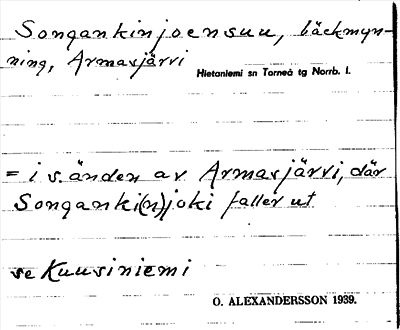 Songankinjoensuu, bäckmyn-
ning, Armasjärvi
Hietaniemi sn Torneå tg Norrb. l.
= i s. änden av Armasjärvi, där
Songanki(n)joki faller ut
se Kuusiniemi
O. ALEXANDERSSON 1939.